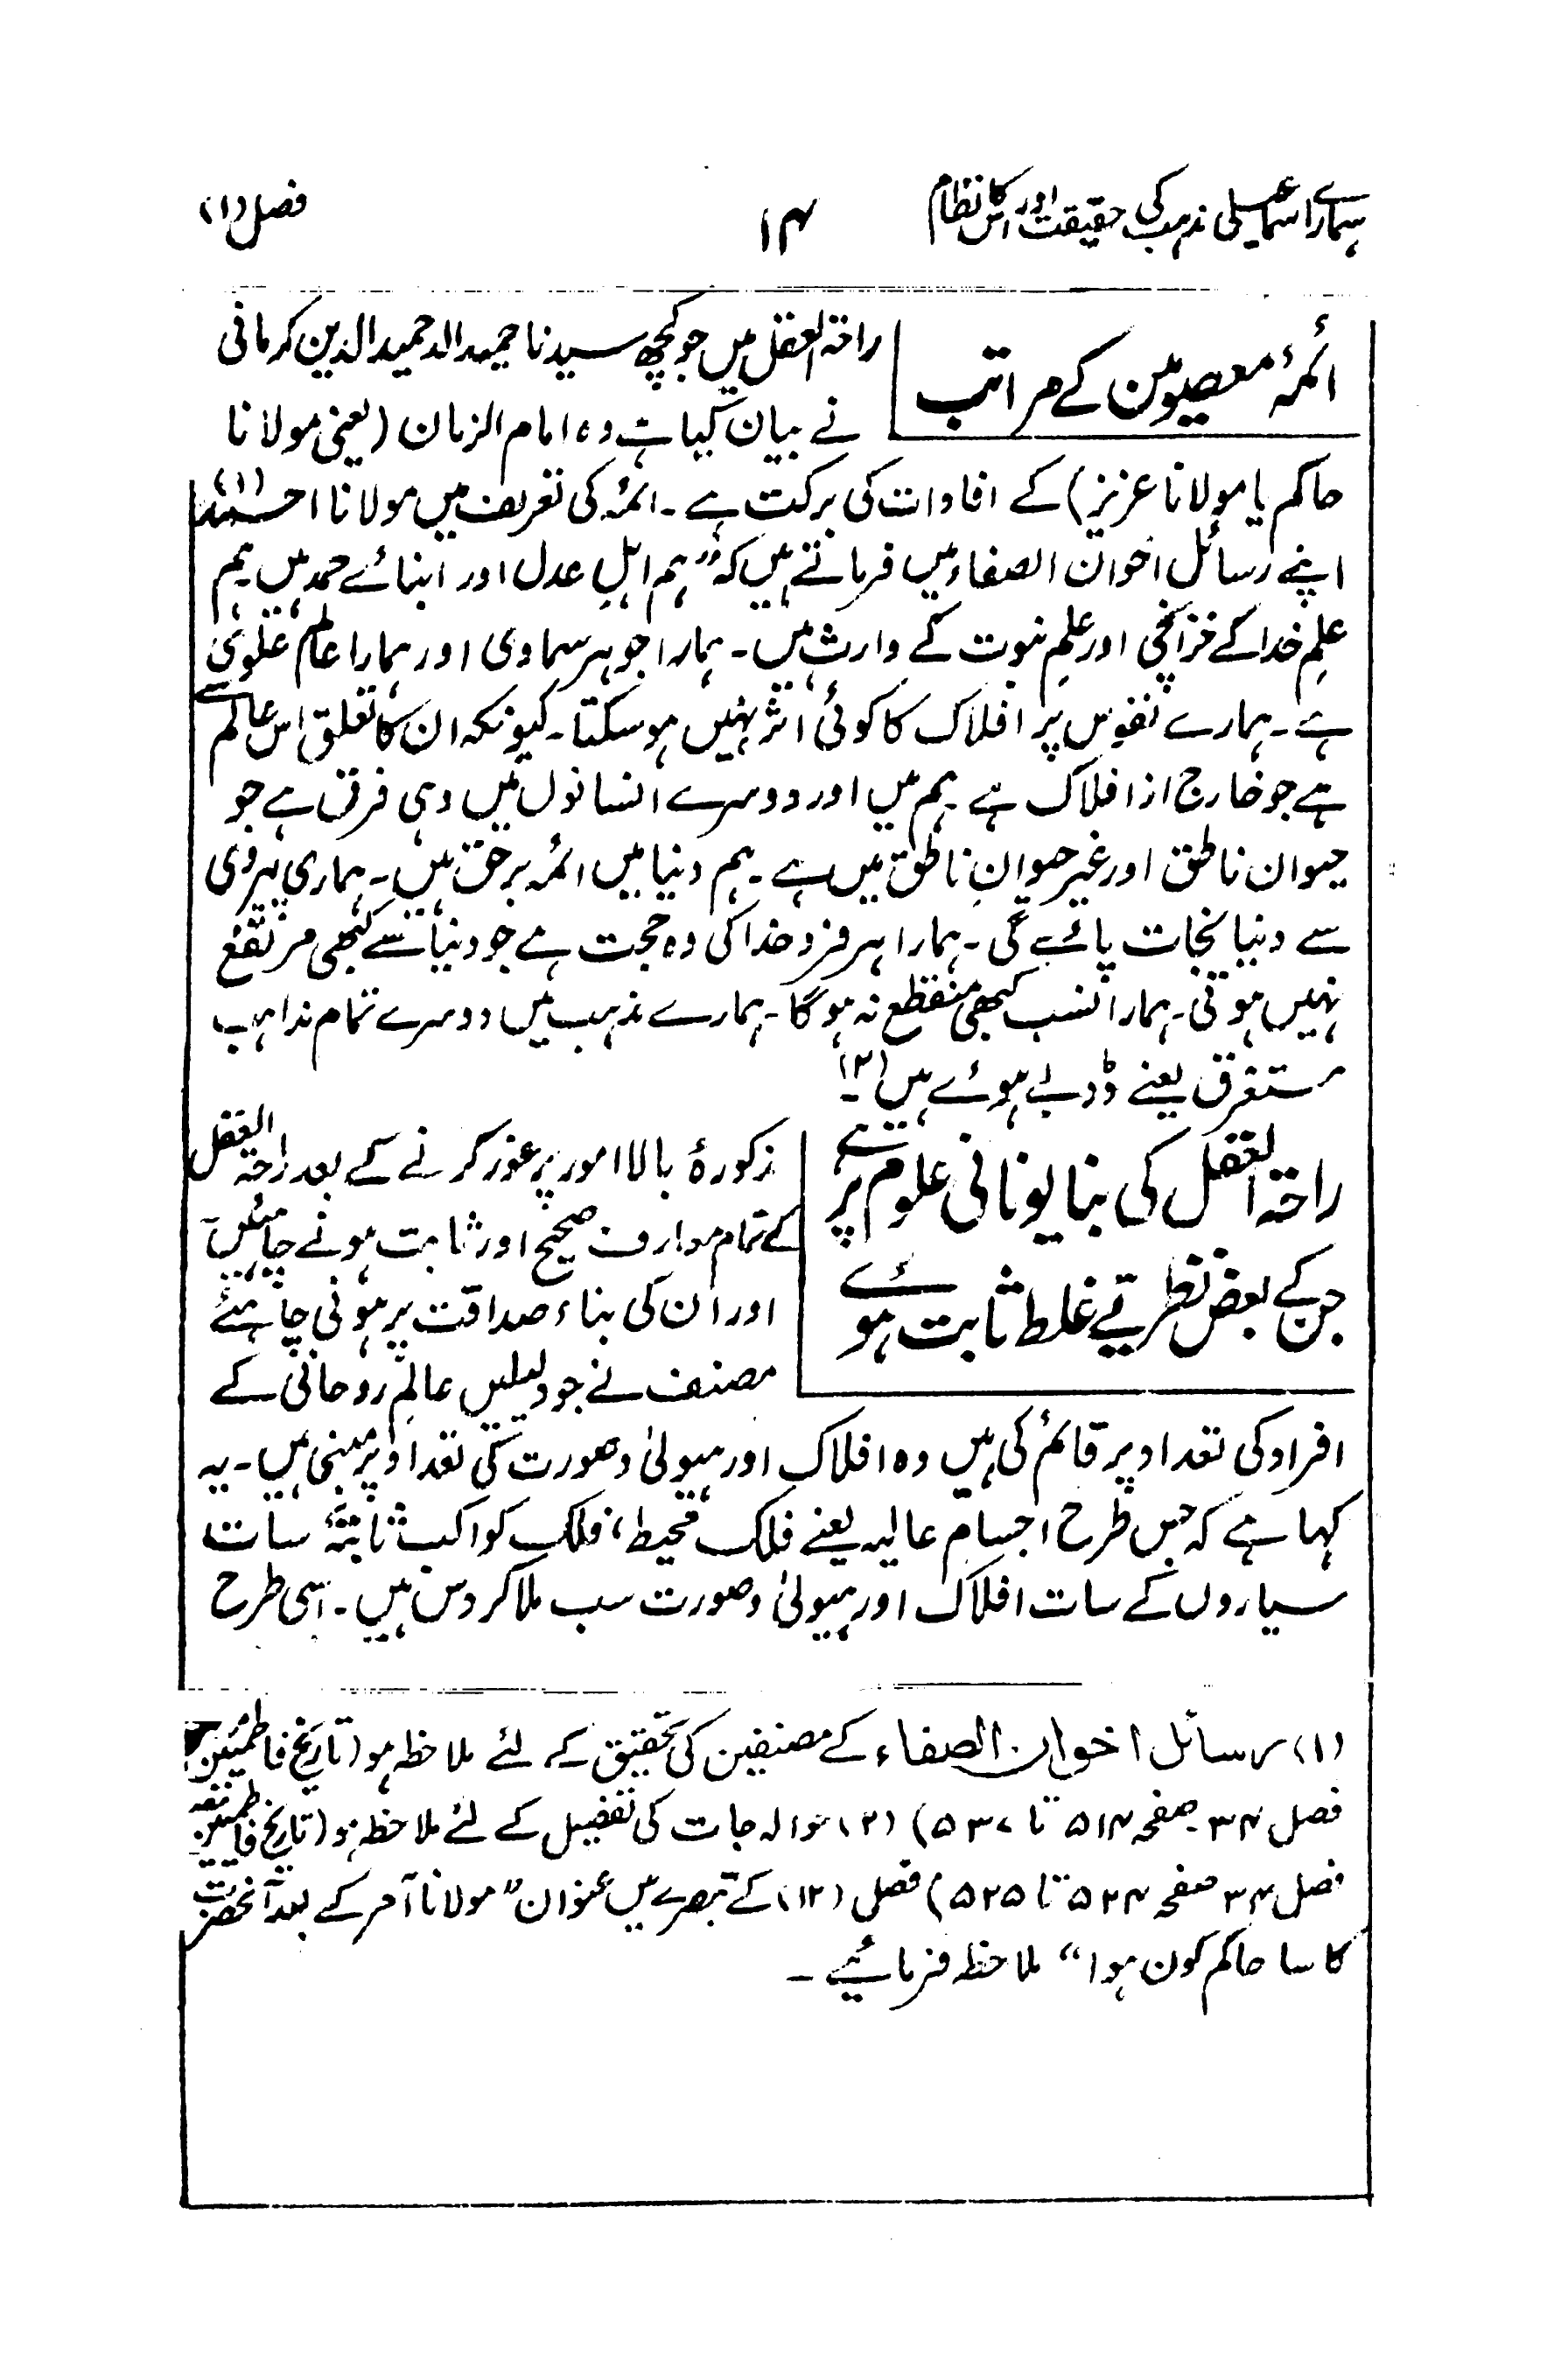 ہمارے اسماعیلی مذہب کی حقیقت اور اس کا نظام
۱۴
فصل (۱)
ائمۂ معصومین کے مراتب
راحۃ العقل میں جو کچھ سیدنا حمید الدین کرمانی
نے بیان کیا ہے وہ امام الزمان (یعنی مولانا
حاکم یا مولانا عزیز) کے افادات کی برکت ہے۔ ائمہ کی تعریف میں مولانا احمد (۱)
اپنے رسائل اخوان الصفاء میں فرماتے ہیں کہ "ہم اہلِ عدل اور ابنائے حمد ہیں ہم
علمِ خدا کے خزانچی اور علمِ نبوت کے وارث ہیں۔ ہمارا جوہر سماوی اور ہمارا عالم علوی
ہے۔ ہمارے نفوس پر افلاک کا کوئی اثر نہیں ہو سکتا۔ کیونکہ ان کا تعلق اس عالم سے
ہے جو خارج از افلاک ہے ہم میں اور دوسرے انسانوں میں وہی فرق ہے جو
حیوان ناطق اور غیر حیوانِ ناطق میں ہے۔ ہم دنیا میں ائمہ برحق ہیں۔ ہماری پیروی
سے دنیا نجات پائے گی۔ ہمارا ہر فرد خدا کی وہ حجت ہے جو دنیا سے کبھی مرتفع
نہیں ہوتی۔ ہمارا نسب کبھی منقطع نہ ہوگا۔ ہمارے مذہب میں دوسرے تمام مذاہب
مستغرق یعنے ڈوبے ہوئے ہیں (۲)۔
راحۃ العقل کی بنا یونانی علوم پر ہے
جن کے بعض نظریے غلط ثابت ہوئے
مذکورۂ بالا امور پر غور کرنے کے بعد راحۃ العقل
کے تمام معارف صحیح اور ثابت ہونے چاہئیں۔
اور ان کی بناء صداقت پر ہونی چاہئے
مصنف نے جو دلیلیں عالمِ روحانی کے
افراد کی تعداد پر قائم کی ہیں وہ افلاک اور ہیولیٰ وصورت کی تعداد پر مبنی ہیں۔ یہ
کہا ہے کہ جس طرح اجسام عالیہ یعنے فلک محیط، فلک کواکب ثابتہ سات
سیاروں کے سات افلاک اور ہیولیٰ وصورت سب ملا کر دس ہیں۔ اسی طرح
(۱) رسائل اخوان الصفاء کے مصنفین کی تحقیق کے لئے ملاحظہ ہو (تاریخ فاطمیین
فصل ۳۴ صفحہ ۵۱۴ تا ۵۳۷) (۲) حوالہ جات کی تفصیل کے لئے ملاحظہ ہو (تاریخ فاطمیین
فصل ۳۴ صفحہ ۵۲۴ تا ۵۲۵) فصل (۱۲) کے تبصرے میں عنوان "مولانا آمر کے بعد آنحضرت
کا سا حاکم کون ہوا" ملاحظہ فرمائیے۔